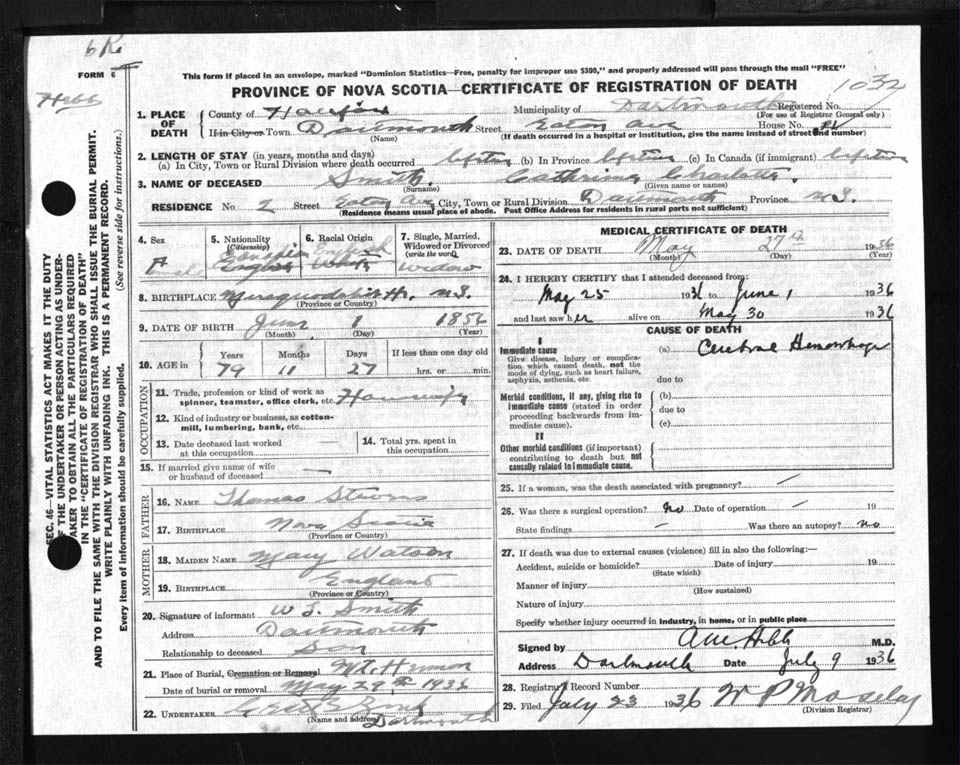 6R
FORM 6
This form if placed in an envelope, marked "Dominion Statistics—Free, penalty for improper use $300," and properly addressed will pass through the mail "FREE"
PROVINCE OF NOVA SCOTIA—CERTIFICATE OF REGISTRATION OF DEATH
Hebb
1032
1. PLACE OF DEATH
County of Halifax Municipality of Dartmouth Registered No.
(For use of Registrar General only)
If in City or Town Dartmouth Street Eaton Ave House No.
(Name) (If death occurred in a hospital or institution, give the name instead of street and number)
2. LENGTH OF STAY (in years, months and days)
(a) In City, Town or Rural Division where death occurred Lifetime (b) In Province Lifetime (c) In Canada (if immigrant) Lifetime
3. NAME OF DECEASED Smith, Cathrine Charlotte.
(Surname) (Given name or names)
RESIDENCE No 2 Street Eaton Ave City, Town or Rural Division Dartmouth Province N.S.
(Residence means usual place of abode. Post Office Address for residents in rural parts not sufficient)
4. Sex Female
5. Nationality (Citizenship) Canadian English
6. Racial Origin English White
7. Single, Married, Widowed or Divorced (write the word) Widow
8. BIRTHPLACE Musquodoboit Hr. N.S.
(Province or Country)
9. DATE OF BIRTH June 1 1856
(Month) (Day) (Year)
10. AGE in Years 79 Months 11 Days 27 If less than one day old hrs. or min.
OCCUPATION
11. Trade, profession or kind of work as spinner, teamster, office clerk, etc. Housewife
12. Kind of industry or business, as cotton-mill, lumbering, bank, etc.
13. Date deceased last worked at this occupation —
14. Total yrs. spent in this occupation
15. If married give name of wife or husband of deceased —
FATHER
16. NAME Thomas Stevens
17. BIRTHPLACE Nova Scotia
(Province or Country)
MOTHER
18. MAIDEN NAME Mary Watson
19. BIRTHPLACE England
(Province or Country)
20. Signature of informant W S. Smith
Address Dartmouth
Relationship to deceased Son
21. Place of Burial, Cremation or Removal Mt. Hermon
Date of burial or removal May 29th 1936
22. UNDERTAKER
(Name and address) Dartmouth
MEDICAL CERTIFICATE OF DEATH
23. DATE OF DEATH May 27th 1936
(Month) (Day) (Year)
24. I HEREBY CERTIFY that I attended deceased from:
May 25 1936 to June 1 1936
and last saw her alive on May 30 1936
CAUSE OF DEATH
I
Immediate cause (a) Cerebral Hemorrhage
Give disease, injury or complication which caused death, not the mode of dying, such as heart failure, asphyxia, asthenia, etc.
due to
Morbid conditions, if any, giving rise to immediate cause (stated in order proceeding backwards from immediate cause).
(b)
due to
(c)
II
Other morbid conditions (if important) contributing to death but not causally related to immediate cause.
25. If a woman, was the death associated with pregnancy? —
26. Was there a surgical operation? no Date of operation — 19
State findings — Was there an autopsy? no
27. If death was due to external causes (violence) fill in also the following:—
Accident, suicide or homicide? Date of injury 19
(State which)
Manner of injury
(How sustained)
Nature of injury
Specify whether injury occurred in industry, in home, or in public place
Signed by Hebb M.D.
Address Dartmouth Date July 9 1936
28. Registrar's Record Number
29. Filed July 23 1936 W P Moseley
(Division Registrar)
SEC. 46—VITAL STATISTICS ACT MAKES IT THE DUTY
OF THE UNDERTAKER OR PERSON ACTING AS UNDERTAKER TO OBTAIN ALL THE PARTICULARS REQUIRED
IN THE "CERTIFICATE OF REGISTRATION OF DEATH"
AND TO FILE THE SAME WITH THE DIVISION REGISTRAR WHO SHALL ISSUE THE BURIAL PERMIT.
WRITE PLAINLY WITH UNFADING INK. THIS IS A PERMANENT RECORD.
Every item of information should be carefully supplied. (See reverse side for instructions.)